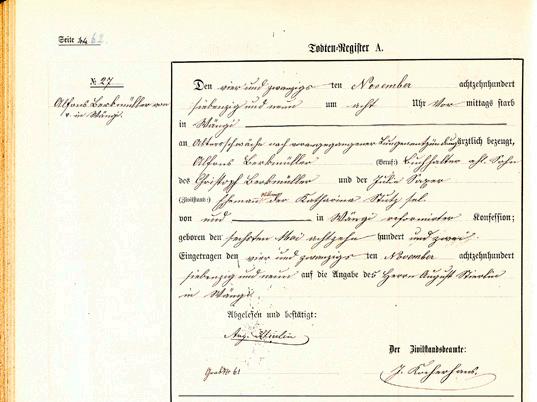 Seite 44 62
Todten-Register A.
№ 27
Alfons Berkmüller von
u. in Wängi.
Den vier und zwanzigsten November achtzehnhundert
siebenzig und neun um acht Uhr Vor mittags starb
in Wängi
an Altersschwäche nach vorangegangener Lungenentzündung ärztlich bezeugt,
Alfons Berkmüller (Beruf:) Buchhalter ehl. Sohn
des Christoph Berkmüller und der Julie Saxer
(Zivilstand:) Ehemann der Katharina Stutz sel.
von und in Wängi reformirter Konfession;
geboren den sechsten Mai achtzehn hundert und zwei.
Eingetragen den vier und zwanzigsten November achtzehnhundert
siebenzig und neun auf die Angabe des Herrn August Stierlin
in Wängi.
Abgelesen und bestätigt:
Aug. Stierlin
Der Zivilstandsbeamte:
Grab № 61
J. Kocherhans.